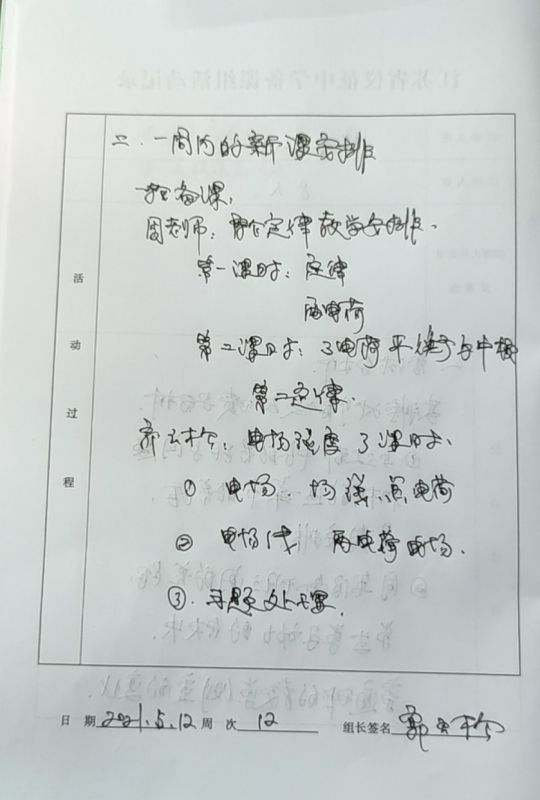 二、一周内的新课安排
备课:
周老师: 库仑定律教学安排.
第一课时: 定律
两电荷
第二课时: 3电荷平衡与牛顿
第二定律.
郭: 电场强度 3课时.
① 电场. 场强. 点电荷
② 电场线 两电荷电场.
③. 习题处理课.
活动过程
日 期 2021.5.12 周 次 12 组长签名 郭